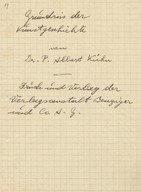 Grundriss der
Kunstgeschichte
von
Dr. P. Albert Kuhn
Druck und Verlag der
Verlagsanstalt Benziger
und Co A. G.